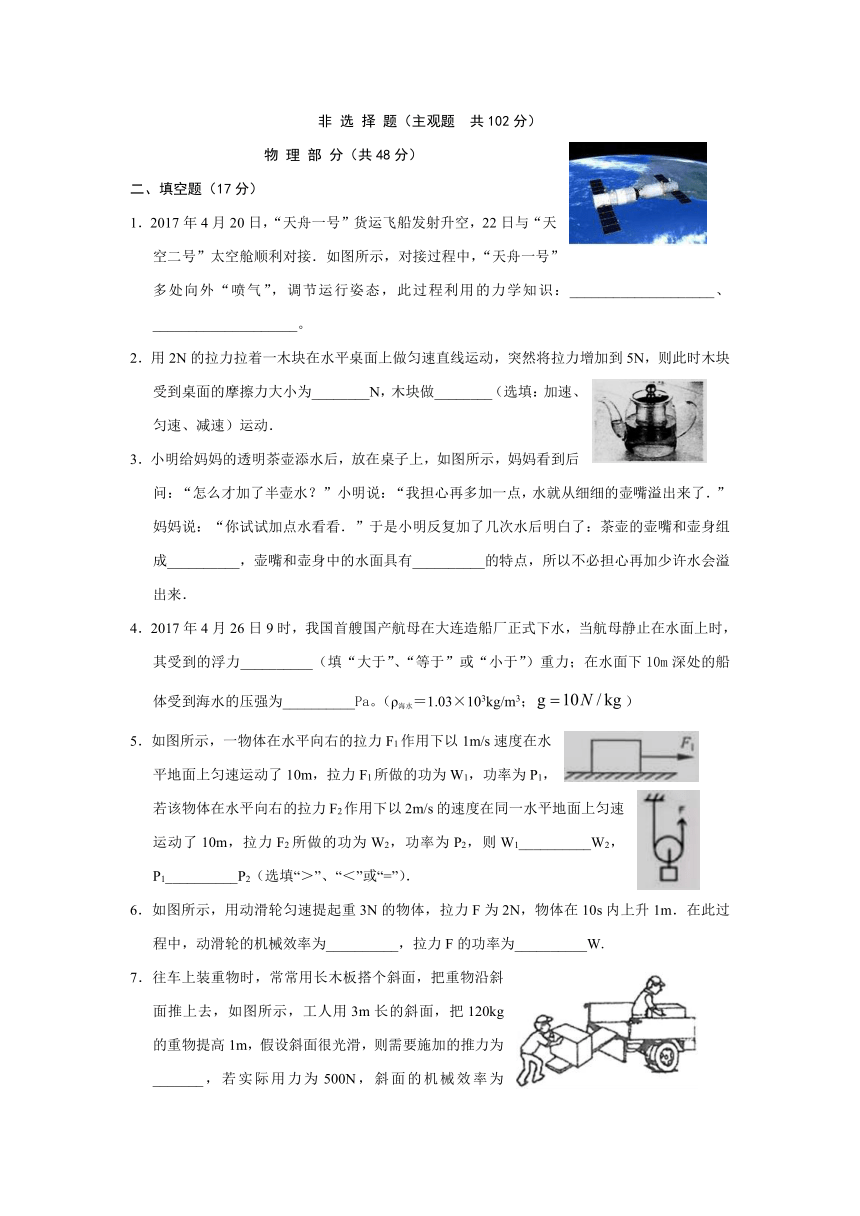 非 选 择 题（主观题　共102分）
物 理 部 分（共48分）
二、填空题（17分）
1．2017年4月20日，“天舟一号”货运飞船发射升空，22日与“天
空二号”太空舱顺利对接．如图所示，对接过程中，“天舟一号”
多处向外“喷气”，调节运行姿态，此过程利用的力学知识：____________________、
____________________。
2．用2N的拉力拉着一木块在水平桌面上做匀速直线运动，突然将拉力增加到5N，则此时木块
受到桌面的摩擦力大小为________N，木块做________（选填：加速、
匀速、减速）运动．
3．小明给妈妈的透明茶壶添水后，放在桌子上，如图所示，妈妈看到后
问：“怎么才加了半壶水？”小明说：“我担心再多加一点，水就从细细的壶嘴溢出来了．”
妈妈说：“你试试加点水看看．”于是小明反复加了几次水后明白了：茶壶的壶嘴和壶身组
成__________，壶嘴和壶身中的水面具有__________的特点，所以不必担心再加少许水会溢
出来．
4．2017年4月26日9时，我国首艘国产航母在大连造船厂正式下水，当航母静止在水面上时，
其受到的浮力__________（填“大于”、“等于”或“小于”）重力；在水面下10m深处的船
体受到海水的压强为__________Pa。（ρ海水＝1.03×10³kg/m³；g＝10N/kg）
5．如图所示，一物体在水平向右的拉力F₁作用下以1m/s速度在水
F₁
平地面上匀速运动了10m，拉力F₁所做的功为W₁，功率为P₁，
若该物体在水平向右的拉力F₂作用下以2m/s的速度在同一水平地面上匀速
F
运动了10m，拉力F₂所做的功为W₂，功率为P₂，则W₁__________W₂，
P₁__________P₂（选填“＞”、“＜”或“=”）．
6．如图所示，用动滑轮匀速提起重3N的物体，拉力F为2N，物体在10s内上升1m．在此过
程中，动滑轮的机械效率为__________，拉力F的功率为__________W.
7．往车上装重物时，常常用长木板搭个斜面，把重物沿斜
面推上去，如图所示，工人用3m长的斜面，把120kg
的重物提高1m，假设斜面很光滑，则需要施加的推力为
_______，若实际用力为500N，斜面的机械效率为